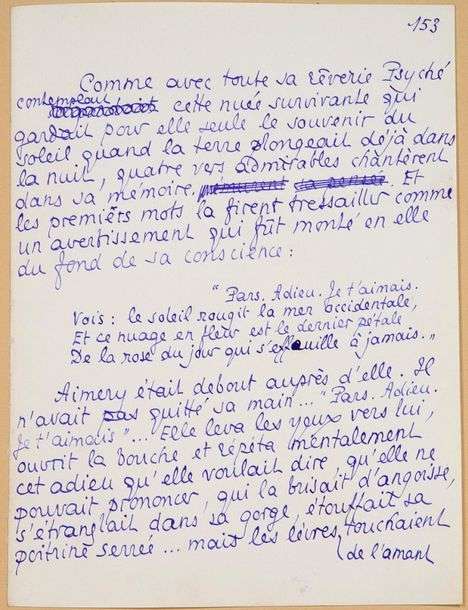 153
Comme avec toute sa rêverie Psyché
contemplait cette nuée survivante qui
gardait pour elle seule le souvenir du
soleil quand la terre plongeait déjà dans
la nuit, quatre vers admirables chantèrent
dans sa mémoire. Et
les premiers mots la firent tressaillir comme
un avertissement qui fût monté en elle
du fond de sa conscience :
"Pars. Adieu. Je t'aimais.
Vois : le soleil rougit la mer occidentale,
Et ce nuage en fleur est le dernier pétale
De la rose du jour qui s'effeuille à jamais."
Aimery était debout auprès d'elle. Il
n'avait pas quitté sa main... "Pars. Adieu.
Je t'aimais"... Elle leva les yeux vers lui,
ouvrit la bouche et répéta mentalement
cet adieu qu'elle voulait dire qu'elle ne
pouvait prononcer, qui la brisait d'angoisse,
s'étranglait dans sa gorge, étouffait sa
poitrine serrée... mais les lèvres touchaient
de l'amant